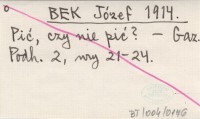 BEK Józef 1914.
Pić, czy nie pić? – Gaz.
Podh. 2, nry 21-24.
BJ/004/0145